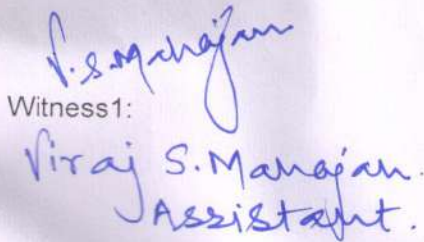 V.S.Mahajan
Witness1:
Viraj S.Mahajan.
Assistant.